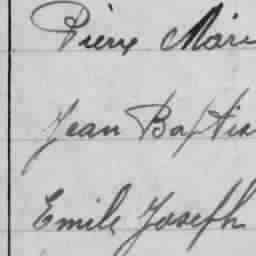 Pierre Marie
Jean Baptis
Emile Joseph